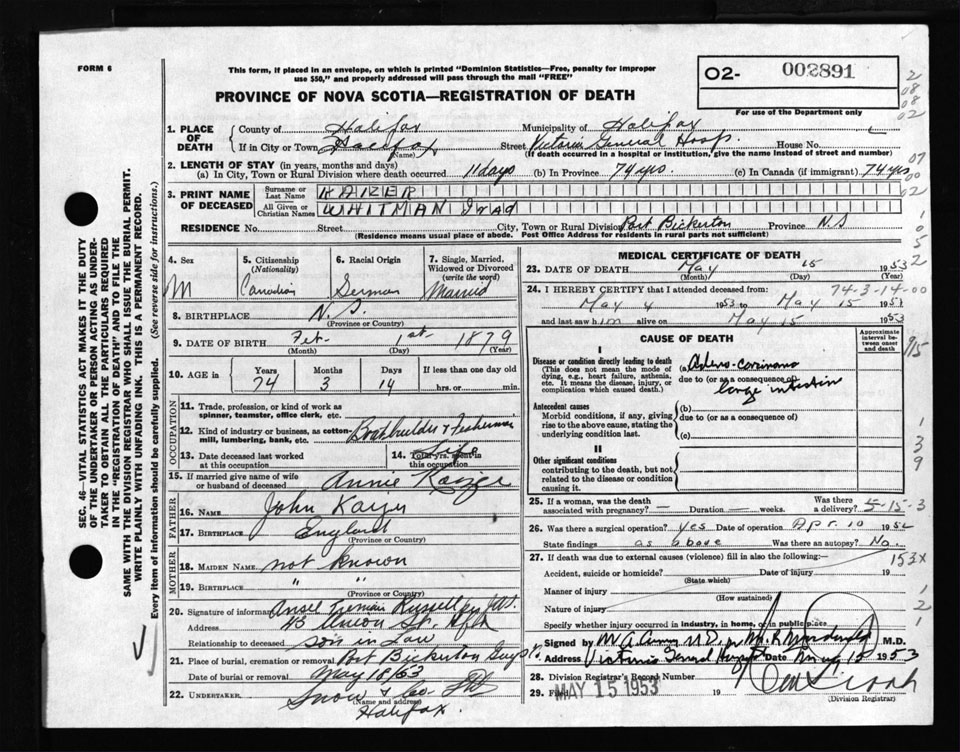 FORM 6
This form, if placed in an envelope, on which is printed "Dominion Statistics—Free, penalty for improper
use $50," and properly addressed will pass through the mail "FREE"
O2- 002891
For use of the Department only
PROVINCE OF NOVA SCOTIA—REGISTRATION OF DEATH
1. PLACE OF DEATH { County of Halifax Municipality of Halifax
If in City or Town Halifax (Name) Street Victoria General Hosp. House No.
(If death occurred in a hospital or institution, give the name instead of street and number)
2. LENGTH OF STAY (in years, months and days)
(a) In City, Town or Rural Division where death occurred 11 days (b) In Province 74 yrs. (c) In Canada (if immigrant) 74 yrs
3. PRINT NAME OF DECEASED { Surname or Last Name KAIZER
All Given or Christian Names WHITMAN Irad
RESIDENCE No. Street City, Town or Rural Division Port Bickerton Province N.S
(Residence means usual place of abode. Post Office Address for residents in rural parts not sufficient)
4. Sex M
5. Citizenship (Nationality) Canadian
6. Racial Origin German
7. Single, Married, Widowed or Divorced (write the word) Married
8. BIRTHPLACE N.S.
(Province or Country)
9. DATE OF BIRTH Feb. 1st 1879
(Month) (Day) (Year)
10. AGE in { Years 74 Months 3 Days 14 If less than one day old
hrs. or min.
OCCUPATION
11. Trade, profession, or kind of work as
spinner, teamster, office clerk, etc.
12. Kind of industry or business, as cotton-
mill, lumbering, bank, etc. Boatbuilder & Fisherman
13. Date deceased last worked
at this occupation
14. Total yrs. spent in
this occupation Life
15. If married give name of wife
or husband of deceased Annie Kaizer
FATHER
16. NAME John Kaizer
17. BIRTHPLACE England
(Province or Country)
MOTHER
18. MAIDEN NAME not known
19. BIRTHPLACE " "
(Province or Country)
20. Signature of informant Ansel Russell
Address 43 Union St. Hfx
Relationship to deceased son in law
21. Place of burial, cremation or removal Port Bickerton Guys Co.
Date of burial or removal May 18/53
22. UNDERTAKER Snow & Co.
(Name and address)
Halifax.
MEDICAL CERTIFICATE OF DEATH
23. DATE OF DEATH May 15 1953
(Month) (Day) (Year)
24. I HEREBY CERTIFY that I attended deceased from: 74-3-14-00
May 4 1953 to May 15 195
and last saw him alive on May 15 1953
CAUSE OF DEATH
Approximate interval between onset and death
I
Disease or condition directly leading to death
(This does not mean the mode of dying, e.g., heart failure, asthenia, etc. It means the disease, injury, or complication which caused death.)
(a) Adeno-carcinoma
due to (or as a consequence of)
large intestine
Antecedent causes
Morbid conditions, if any, giving rise to the above cause, stating the underlying condition last.
(b)
due to (or as a consequence of)
(c)
II
Other significant conditions
contributing to the death, but not related to the disease or condition causing it.
25. If a woman, was the death
associated with pregnancy? — Duration — weeks. Was there a delivery? 5-15-3
26. Was there a surgical operation? yes Date of operation Apr. 10 195
State findings as above Was there an autopsy? No.
27. If death was due to external causes (violence) fill in also the following:— 153X
Accident, suicide or homicide? Date of injury
(State which)
Manner of injury
(How sustained)
Nature of injury
Specify whether injury occurred in industry, in home, or in public place
Signed by M.D. M.D.
Address Victoria General Hospital Date May 15 1953
28. Division Registrar's Record Number
29. Filed MAY 15 1953 19
(Division Registrar)
SEC. 46—VITAL STATISTICS ACT MAKES IT THE DUTY
OF THE UNDERTAKER OR PERSON ACTING AS UNDER-
TAKER TO OBTAIN ALL THE PARTICULARS REQUIRED
IN THE "REGISTRATION OF DEATH" AND TO FILE THE
SAME WITH THE DIVISION REGISTRAR WHO SHALL ISSUE THE BURIAL PERMIT.
WRITE PLAINLY WITH UNFADING INK. THIS IS A PERMANENT RECORD.
Every item of information should be carefully supplied. (See reverse side for instructions.)